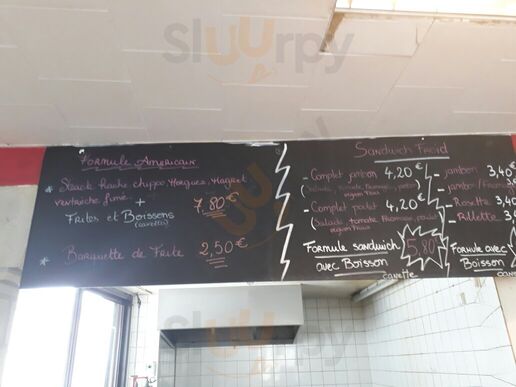 Sluurpy
Formule Americain
* Steack Haché, chippo, Merguez, Magret
ventrèche, fumé +
Frites et Boissons 7,80€
(canette)
* Barquette de Frite 2,50€
Sandwich Froid
- Complet jambon 4,20€
(Salade, tomate, fromage,
- Complet poulet 4,20€
(Salade tomate fromage, poulet
Formule sandwich 5,80
avec Boisson
canette
- jambon 3,40€
- jambon/
- Rosette 3,
- Rillette 3
Formule avec
Boisson
canette
Sluurpy